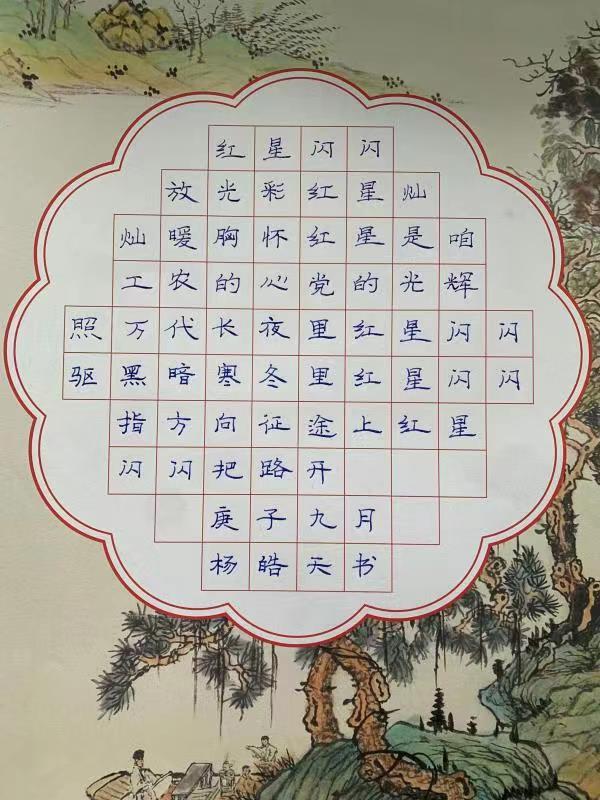 红星闪闪
放光彩红星灿
灿暖胸怀红星是咱
工农的心党的光辉
照万代长夜里红星闪闪
驱黑暗寒冬里红星闪闪
指方向征途上红星
闪闪把路开
庚子九月
杨皓天书